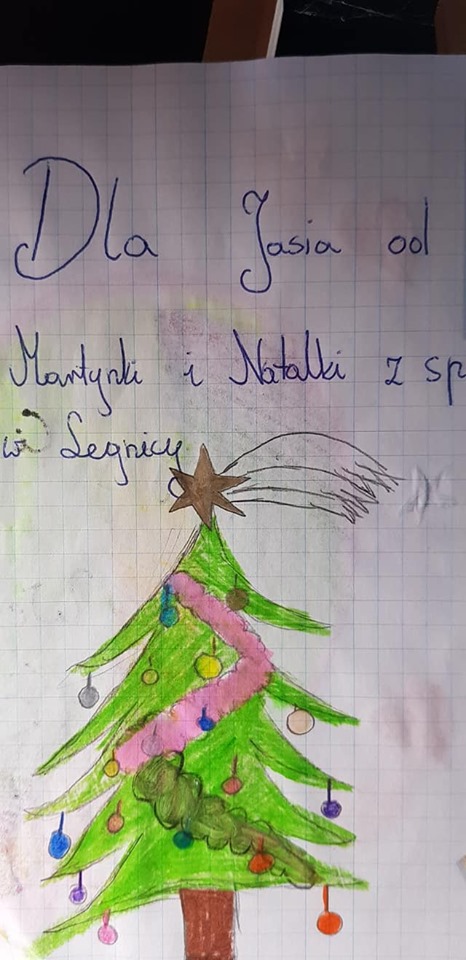 Dla Jasia od
Martynki i Natalki z sp
w Legnicy